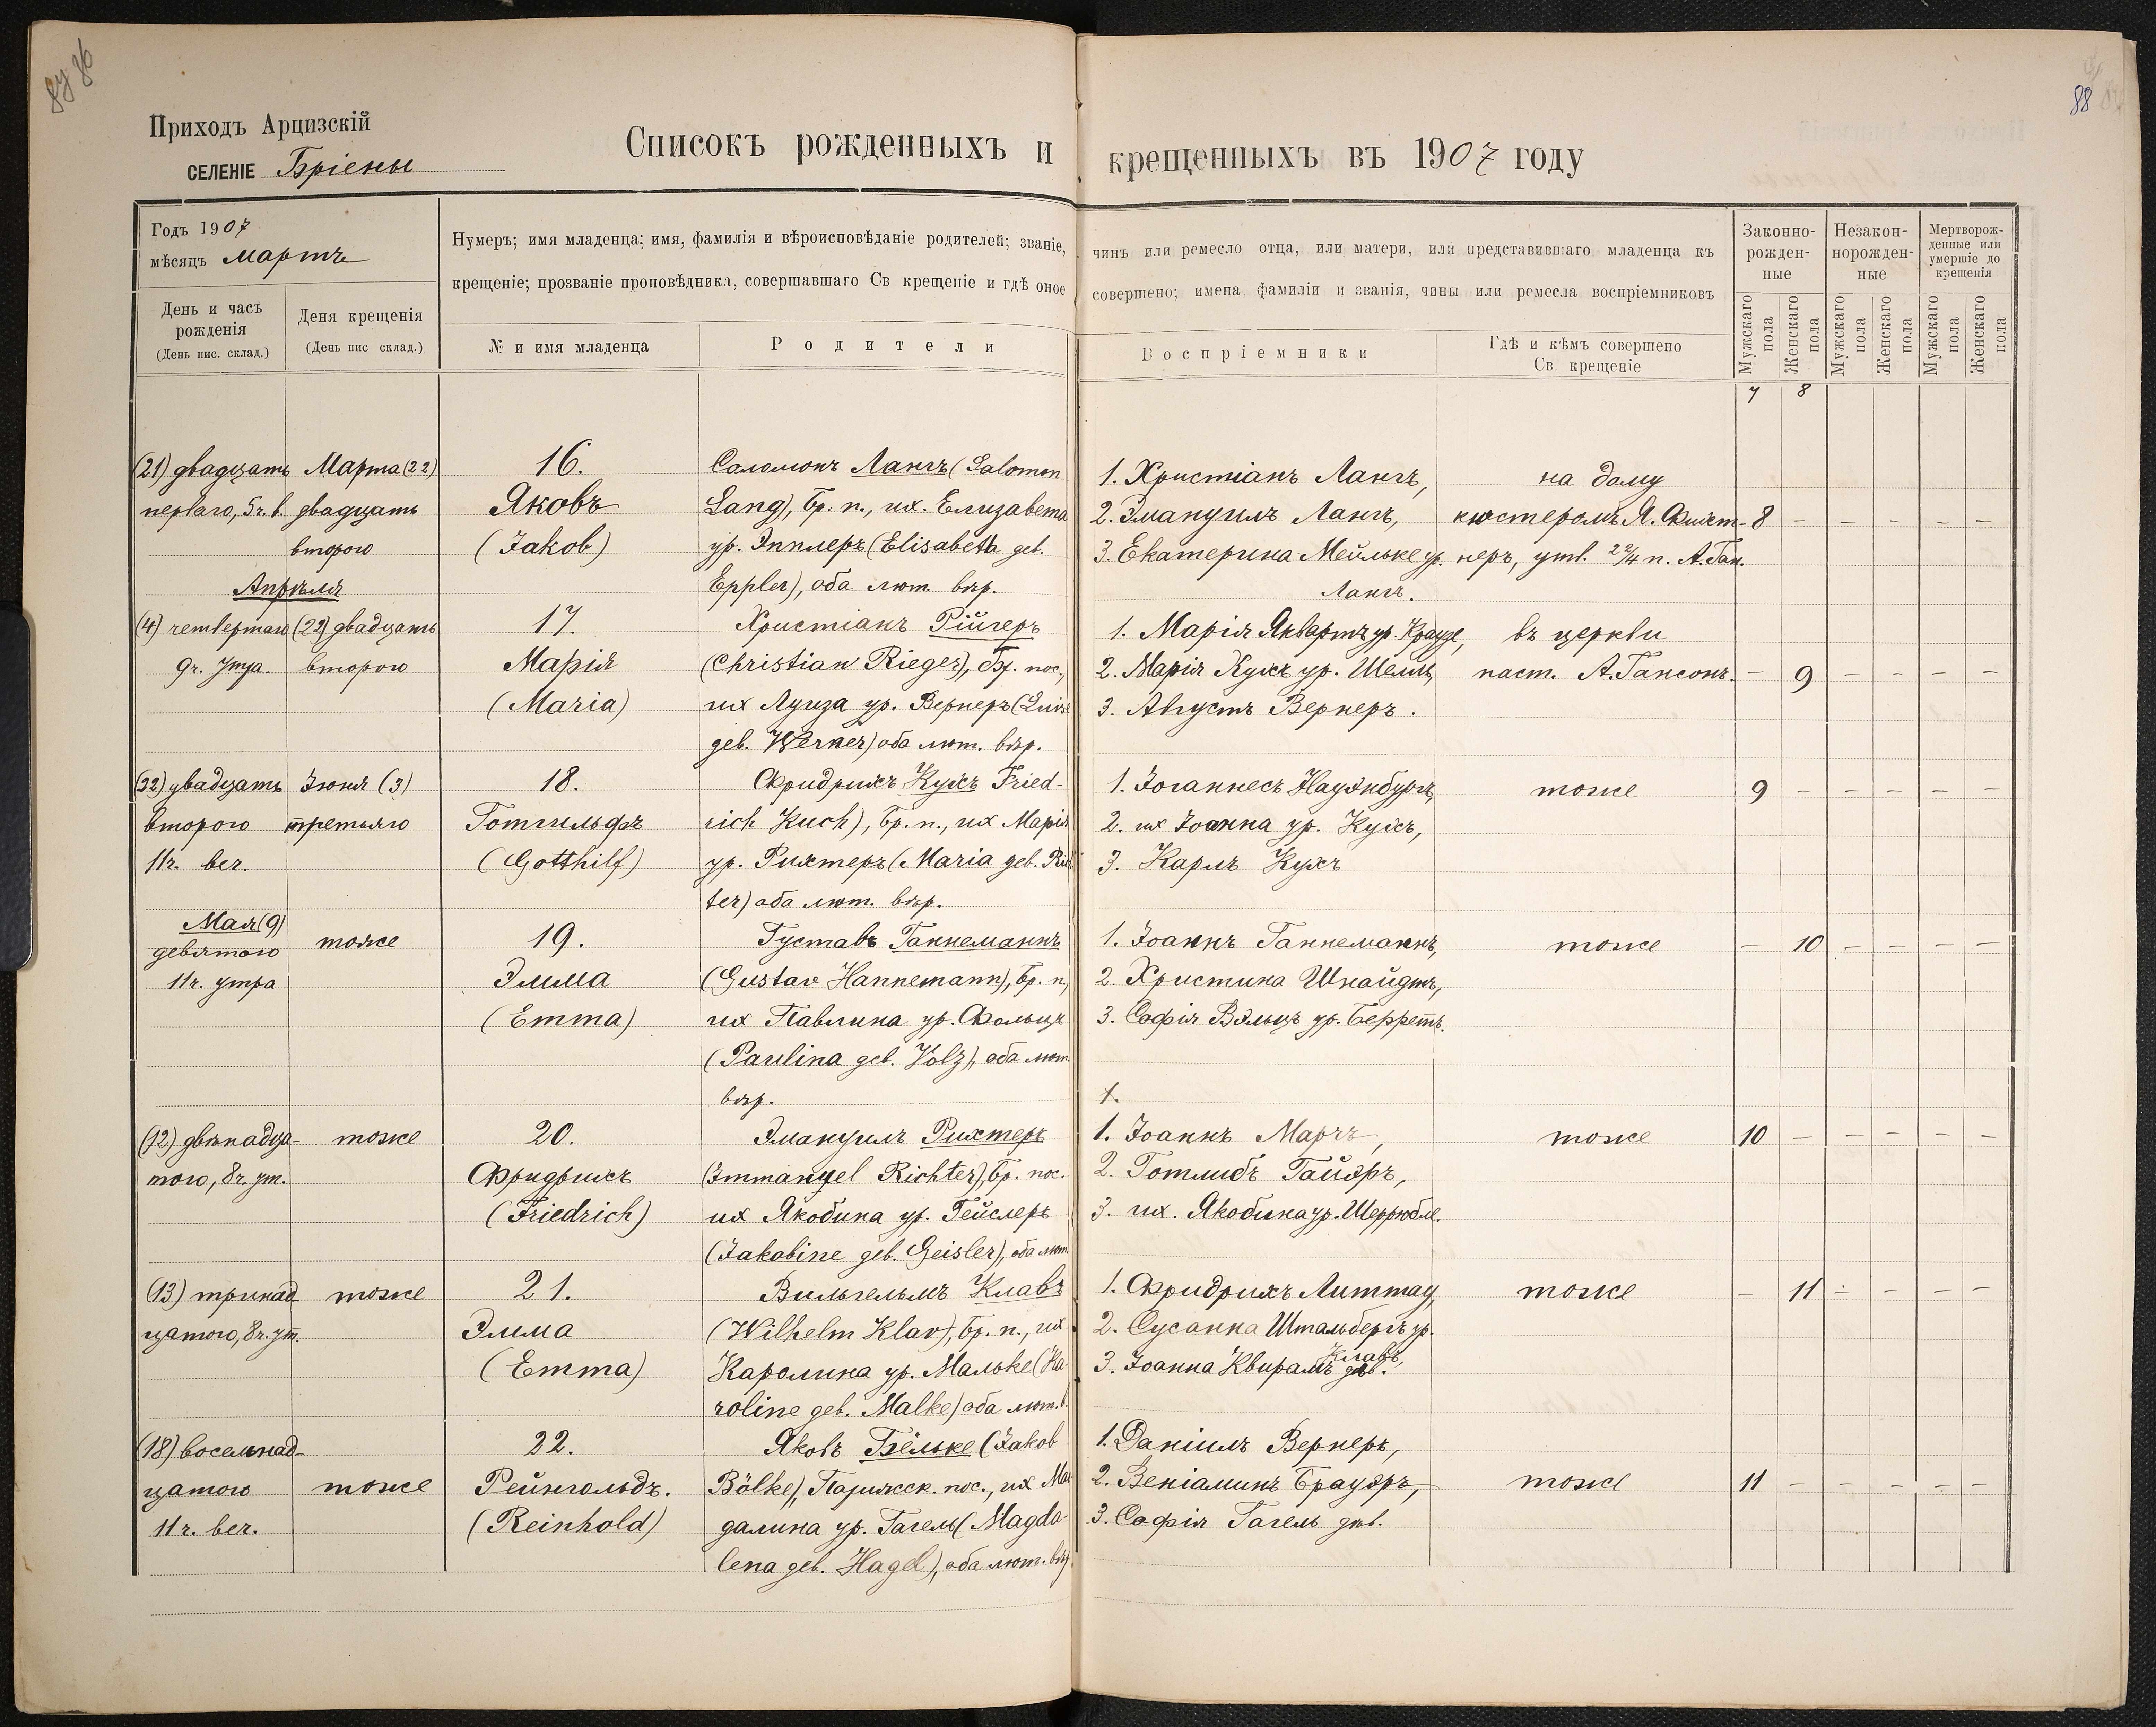 87 86
88
Приходъ Арцизскій
СЕЛЕНІЕ Бріены
Списокъ рожденныхъ и крещенныхъ въ 1907 году
Годъ 1907
мѣсяцъ Мартъ
День и часъ рожденія
(День пис. склад.)
Деня крещенія
(День пис склад.)
Нумеръ; имя младенца; имя, фамилія и вѣроисповѣданіе родителей; званіе, чинъ или ремесло отца, или матери, или представившаго младенца къ
крещеніе; прозваніе проповѣдника, совершавшаго Св крещеніе и гдѣ оное совершено; имена фамиліи и званія, чины или ремесла воспріемниковъ
№ и имя младенца
Родители
Воспріемники
Гдѣ и кѣмъ совершено
Св. крещеніе
Законно-
рожден-
ные
Незакон-
норожден-
ные
Мертворож-
денные или
умершіе до
крещенія
Мужскаго пола
Женскаго пола
Мужскаго пола
Женскаго пола
Мужскаго пола
Женскаго пола
7 8
(21) двадцать
перваго, 5ч. в.
Марта (22)
двадцать
второго
16.
Яковъ
(Jakob)
Соломонъ Лангъ (Salomon
Lang), бр. п., их. Елизавета
ур. Эпплеръ (Elisabeth geb.
Eppler), оба лют. вѣр.
1. Христіанъ Лангъ,
2. Эмануилъ Лангъ,
3. Екатерина Мейльке ур.
Лангъ.
на дому
кюстеромъ Я. Фихт-
неръ, утв. 22/4 п. А. Ган.
8 – – – – –
Апрѣля
(4) четвертаго
9ч. утра.
(22) двадцать
второго
17.
Марія
(Maria)
Христіанъ Рійгеръ
(Christian Rieger), бр. пос.,
их Луиза ур. Вернеръ (Luise
geb. Werner) оба лют. вѣр.
1. Марія Яквартъ ур. Краузе,
2. Марія Кухъ ур. Шелль,
3. Августъ Вернеръ.
въ церкви
паст. А. Гансонъ.
– 9 – – – –
(22) двадцать
второго
11ч. веч.
Іюня (3)
третьяго
18.
Готгильфъ
(Gotthilf)
Фридрихъ Кухъ Fried-
rich Kuch), бр. п., их Марія
ур. Рихтеръ (Maria geb. Rich
ter) оба лют. вѣр.
1. Іоганнесъ Науэнбургъ,
2. их Іоанна ур. Кухъ,
3. Карлъ Кухъ
тоже
9 – – – – –
Мая (9)
девятого
11ч. утра
тоже
19.
Эмма
(Emma)
Густавъ Ганнеманнъ
(Gustav Hannemann), бр. п,
их Павлина ур. Фольцъ
(Paulina geb. Volz), оба лют.
вѣр.
1. Іоаннъ Ганнеманнъ,
2. Христина Шнайдтъ,
3. Софія Вэльцъ ур. Берретъ.
1.
тоже
– 10 – – – –
(12) двѣнадца-
того, 8ч. ут.
тоже
20.
Фридрихъ
(Friedrich)
Эмануилъ Рихтеръ
(Immanuel Richter), бр. пос.
их Якобина ур. Гейслеръ
(Jakobine geb. Geisler), оба лют
1. Іоаннъ Марчъ,
2. Готлибъ Гайэръ,
3. их. Якобина ур. Шеррюбле.
тоже
10 – – – – –
(13) тринад
цатого, 8ч. ут.
тоже
21.
Эмма
(Emma)
Вильгельмъ Клавъ
(Wilhelm Klav), бр. п., их
Каролина ур. Мальке (Ka
roline geb. Malke) оба лют. в.
1. Фридрихъ Литтау,
2. Сусанна Штальбергъ ур.
Клавъ,
3. Іоанна Квирамъ дѣв.
тоже
– 11 – – – –
(18) восемнад-
цатого
11ч. веч.
тоже
22.
Рейнгольдъ.
(Reinhold)
Яковъ Бёльке (Jakob
Bölke), Парижск. пос., их Маг
далина ур. Гагель (Magda-
lena geb. Hagel), оба лют. вѣр
1. Даніилъ Вернеръ,
2. Веніаминъ Брауэръ,
3. Софія Гагель дѣв.
тоже
11 – – – – –